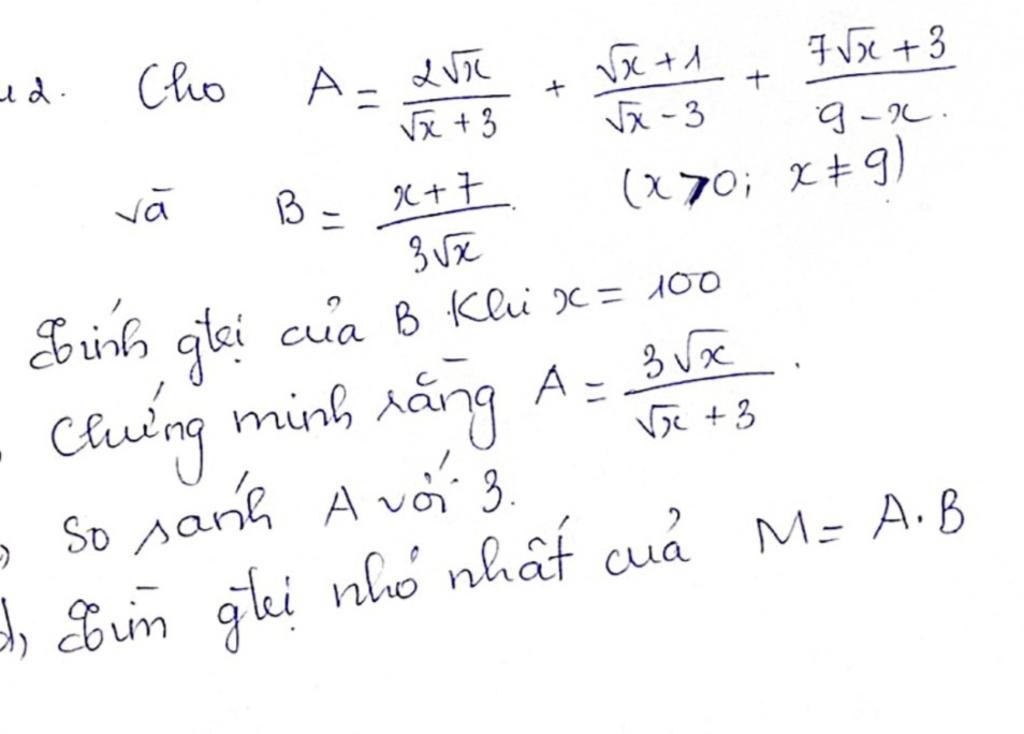 2. Cho A = \frac{2\sqrt{x}}{\sqrt{x}+3} + \frac{\sqrt{x}+1}{\sqrt{x}-3} + \frac{7\sqrt{x}+3}{9-x}.
và B = \frac{x+7}{3\sqrt{x}}. (x>0; x ≠ 9)
Tính gtrị của B khi x = 100
Chứng minh rằng A = \frac{3\sqrt{x}}{\sqrt{x}+3}.
) So sánh A với 3.
d, Tìm gtrị nhỏ nhất của M = A.B